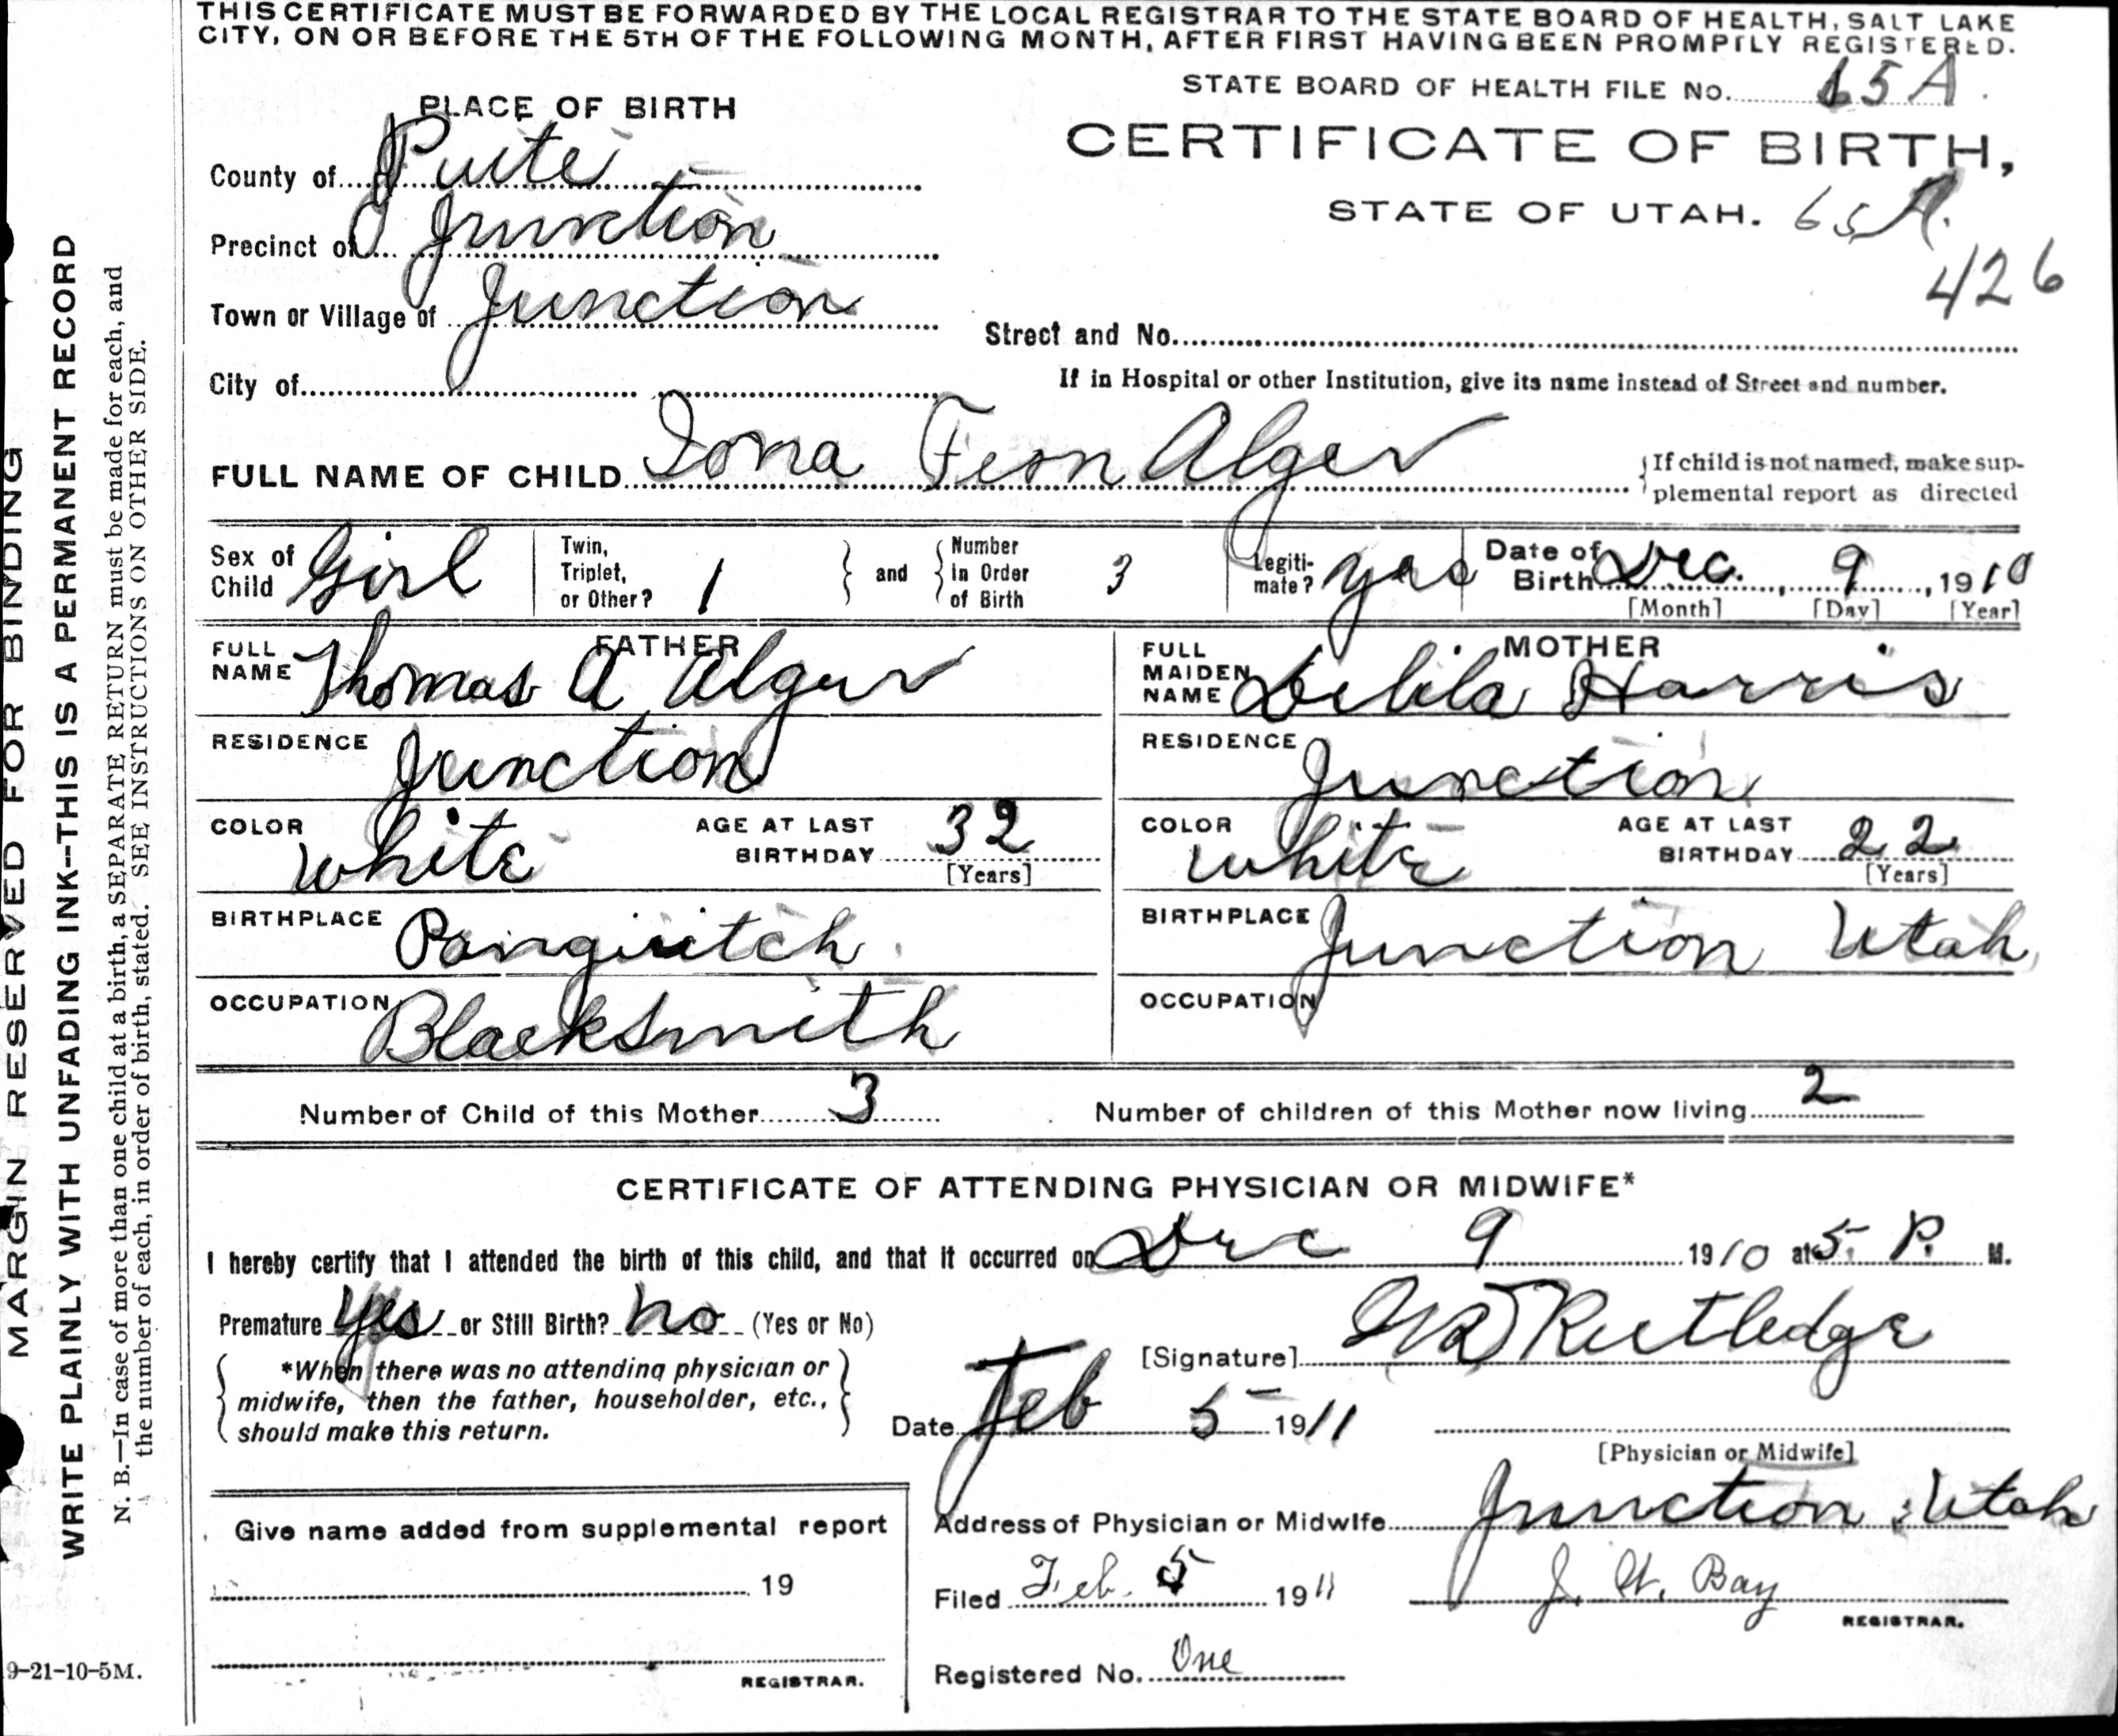 THIS CERTIFICATE MUST BE FORWARDED BY THE LOCAL REGISTRAR TO THE STATE BOARD OF HEALTH, SALT LAKE
CITY, ON OR BEFORE THE 5TH OF THE FOLLOWING MONTH, AFTER FIRST HAVING BEEN PROMPTLY REGISTERED.
STATE BOARD OF HEALTH FILE No. 65 A.
PLACE OF BIRTH
CERTIFICATE OF BIRTH,
County of Puite
STATE OF UTAH. 65A.
426
Precinct of Junction
Town or Village of Junction
Street and No.
City of
If in Hospital or other Institution, give its name instead of Street and number.
FULL NAME OF CHILD Iona Fern Alger
If child is not named, make sup-
plemental report as directed
Sex of Child Girl
Twin, Triplet, or Other? 1
and
Number in Order of Birth 3
Legiti-mate? yes
Date of Birth Dec. 9, 1910
[Month] [Day] [Year]
FATHER
FULL NAME Thomas A Alger
MOTHER
FULL MAIDEN NAME Delila Harris
RESIDENCE Junction
RESIDENCE Junction
COLOR White
AGE AT LAST BIRTHDAY 32
[Years]
COLOR White
AGE AT LAST BIRTHDAY 22
[Years]
BIRTHPLACE Panguitch
BIRTHPLACE Junction Utah
OCCUPATION Blacksmith
OCCUPATION
Number of Child of this Mother 3
Number of children of this Mother now living 2
CERTIFICATE OF ATTENDING PHYSICIAN OR MIDWIFE*
I hereby certify that I attended the birth of this child, and that it occurred on Dec 9 1910 at 5. P. M.
Premature yes or Still Birth? no (Yes or No)
*When there was no attending physician or
midwife, then the father, householder, etc.,
should make this return.
[Signature] Rutledge
Date Feb 5 1911
[Physician or Midwife]
Give name added from supplemental report
19
REGISTRAR.
Address of Physician or Midwife Junction Utah
Filed Feb. 5 1911
J. W. Bay
REGISTRAR.
Registered No. One
MARGIN RESERVED FOR BINDING
WRITE PLAINLY WITH UNFADING INK--THIS IS A PERMANENT RECORD
N. B.—In case of more than one child at a birth, a SEPARATE RETURN must be made for each, and
the number of each, in order of birth, stated. SEE INSTRUCTIONS ON OTHER SIDE.
9-21-10-5M.